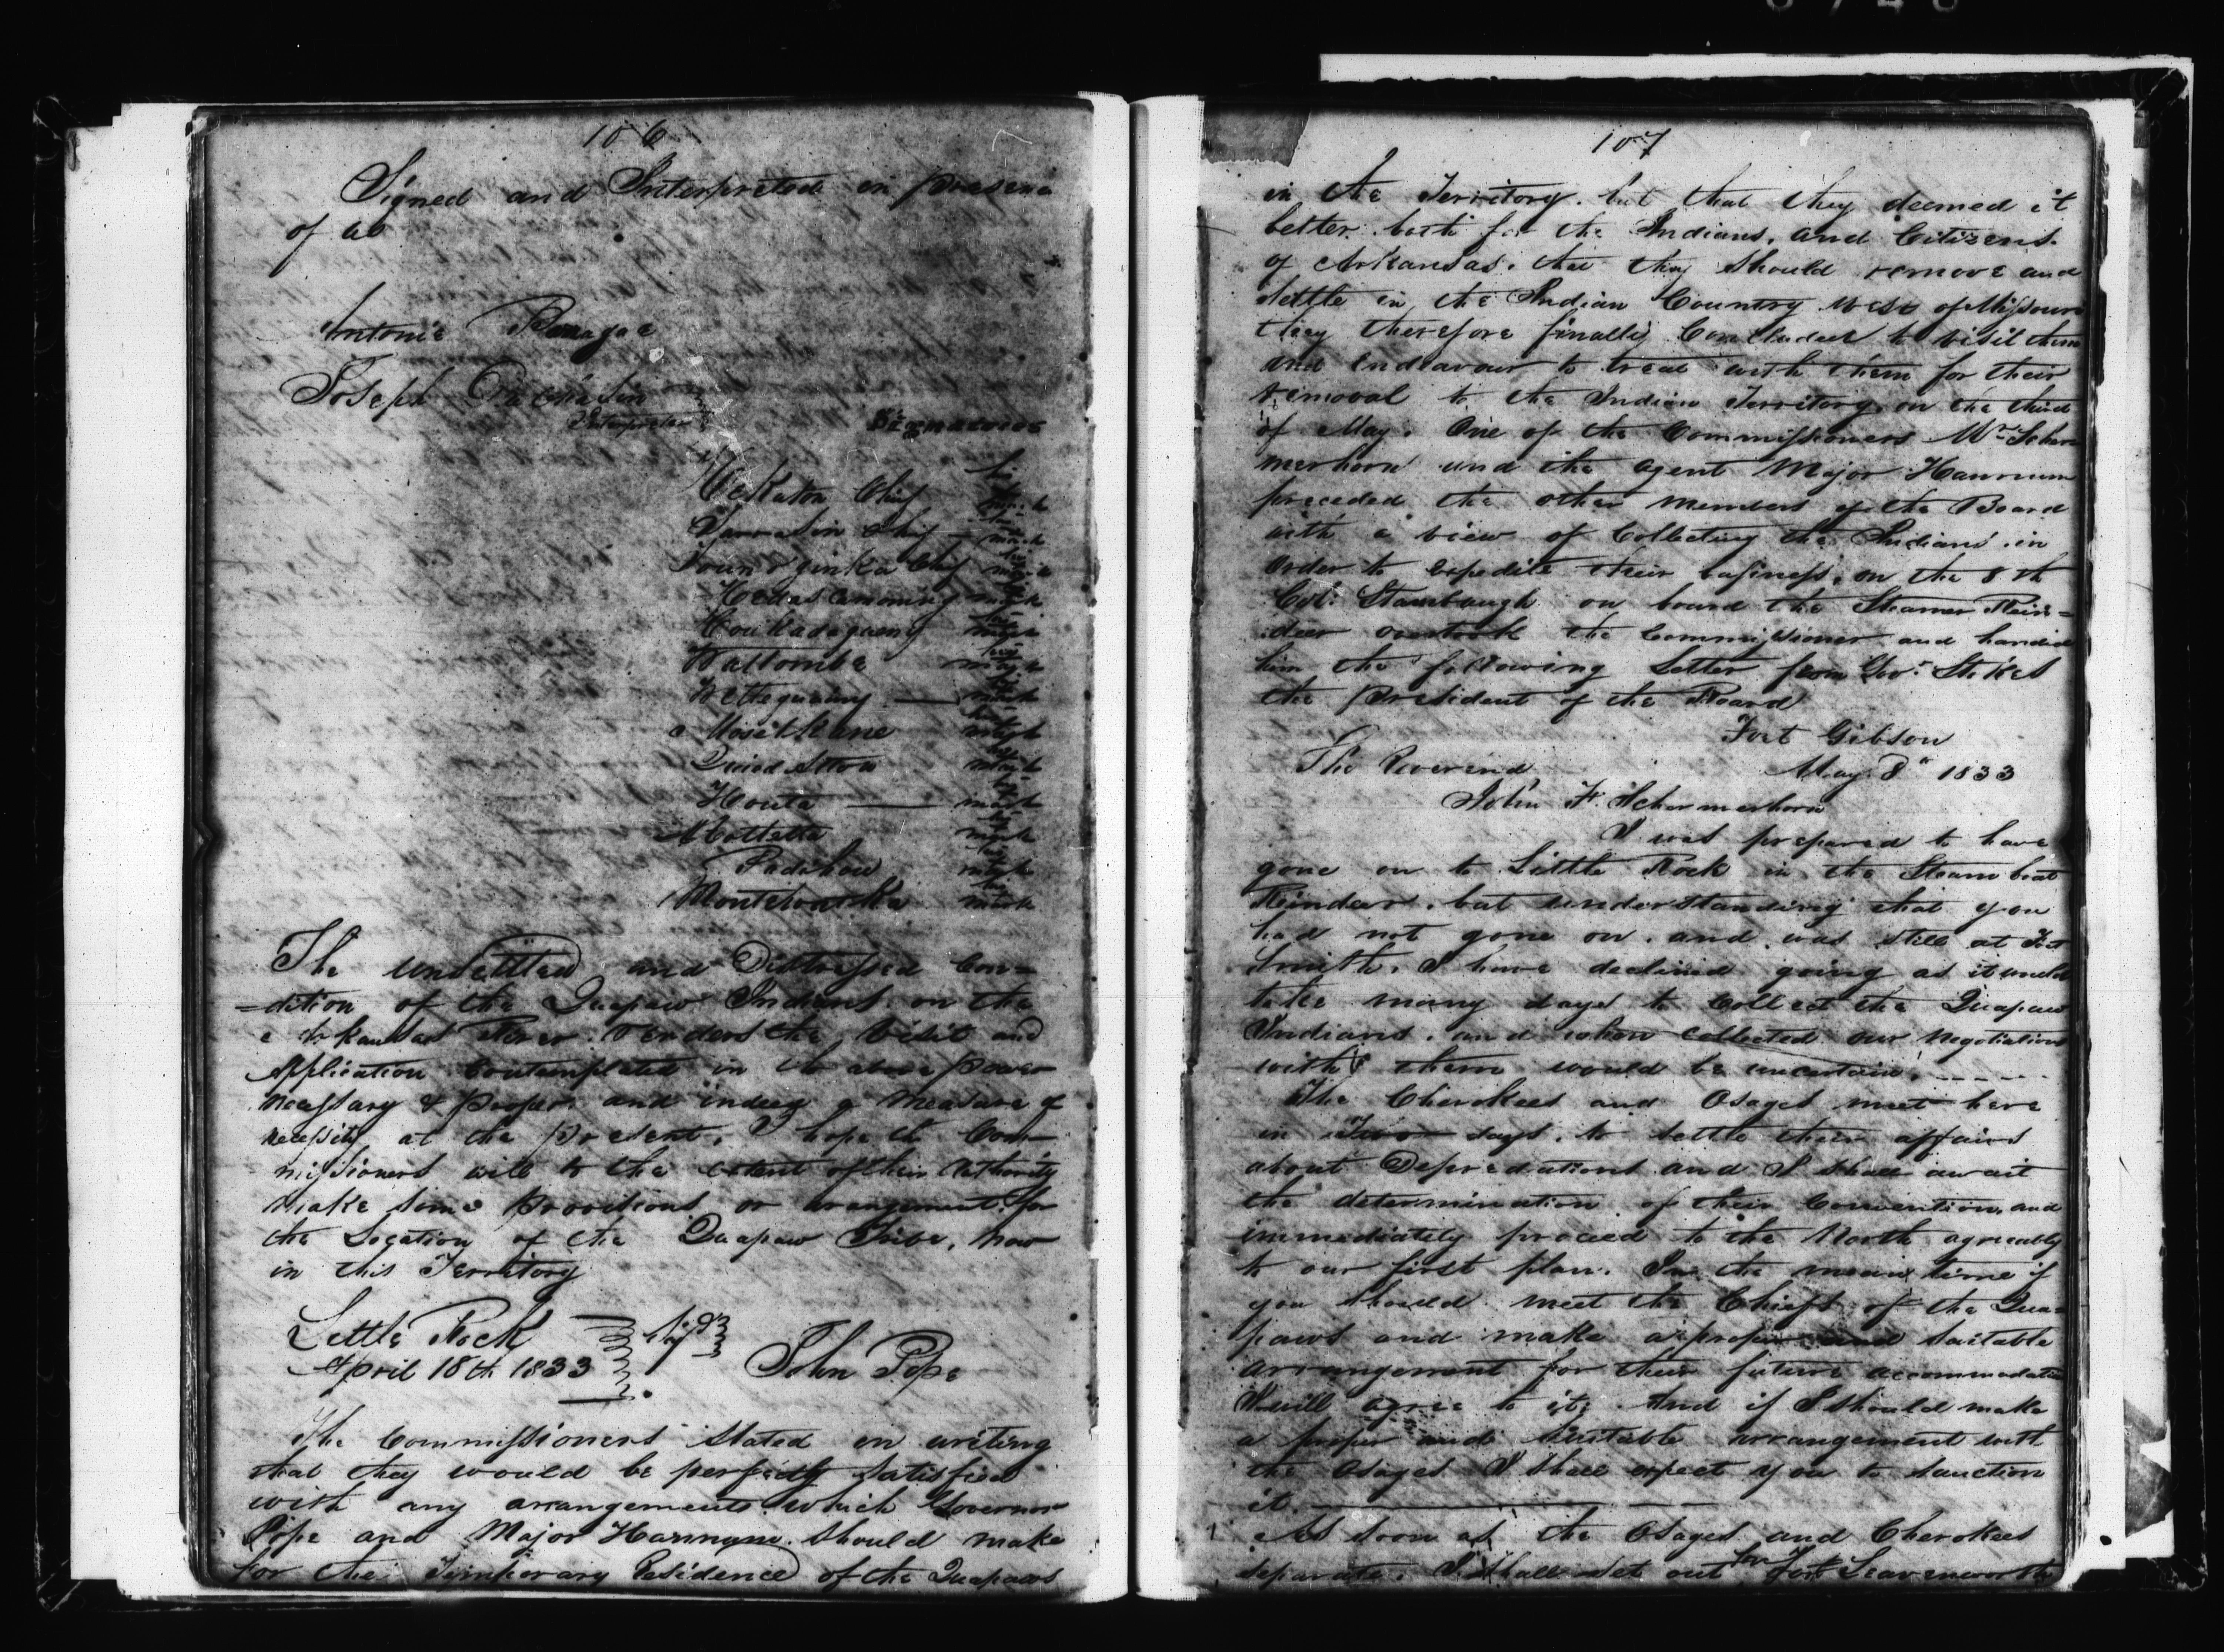 106
Signed and Interpreted in presence
of us
Antonie
Joseph
Interpreter
Signatures
Hekaton Chief his mark
Sarrasin Chief his mark
Chief his mark
his mark
his mark
Wattombe his mark
his mark
his mark
his mark
Houta his mark
his mark
his mark
his mark
The unsettled and Distressed Con=
=dition of the Quapaw Indians on the
Arkansas River. renders the visit and
Application Contemplated in the above power
necessary & proper and indeed a measure of
necessity at the present. I hope the Com-
missioners will to the extent of their Authority
make some provitions or arangement for
the Location of the Quapaw Tribe, now
in this Territory
Little Rock
April 18th 1833
sigd
John Pope
The Commissioners stated in writing
that they would be perfectly satisfied
with any arrangements which Governor
Pope and Major Hannum should make
for the Temporary Residence of the Quapaws
107
in the Territory. but that they deemed it
better both for the Indians, and Citizens
of Arkansas. that they should remove and
settle in the Indian Country West of Missouri
they therefore finally Concluded to visit them
and endeavour to treat with them for their
removal to the Indian Territory on the third
of May. One of the Commissioners Mr Scher
merhorn and the agent Major Hannum
preceded the other members of the Board
with a view of Collecting the Indians in
order to expedite their business, on the 8th
Col. Stambaugh on board the Steamer Rein=
deer overtook the Commissioner and handed
him the following Letter from Gov. Stokes
the President of the Board
Fort Gibson
May 8" 1833
The Reverend
John F. Schermerhorn
I was prepared to have
gone on to Little Rock in the Steam boat
Rindeer. but understanding that you
had not gone on. and was still at Fort
Smith, I have declined going as it would
take many days to Collect the Quapaw
Indians. and when collected our negotiations
with them would be uncertain. ----
The Cherokees and Osages meet here
in Two days. to settle their affairs
about Depredations and I shall await
the determination of their Convention, and
immediately proceed to the North agreeably
to our first plan. In the mean time if
you should meet the Chiefs of the Qua=
paws and make a proper and suitable
arrangement for their future accommodation
I will agree to it. And if I should make
a proper and suitable arrangement with
the Osages I shall expect you to sanction
it.
As soon as the Osages and Cherokees
separate. I shall set out for Fort Leavenworth